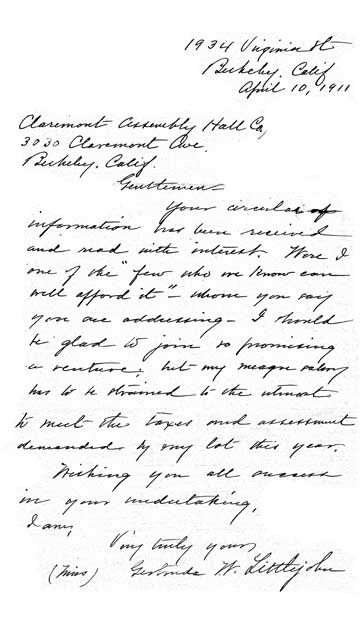 1934 Virginia St
Berkeley, Calif
April 10, 1911
Claremont Assembly Hall Co,
3030 Claremont Ave.
Berkeley, Calif.
Gentlemen—
Your circular of
information has been received
and read with interest. Were I
one of the "few who we know can
well afford it" — whom you say
you are addressing — I should
be glad to join so promising
a venture; but my meagre salary
has to be strained to the utmost
to meet the taxes and assessment
demanded by my lot this year.
Wishing you all success
in your undertaking,
I am,
Very truly yours,
(Miss) Gertrude W. Littlejohn